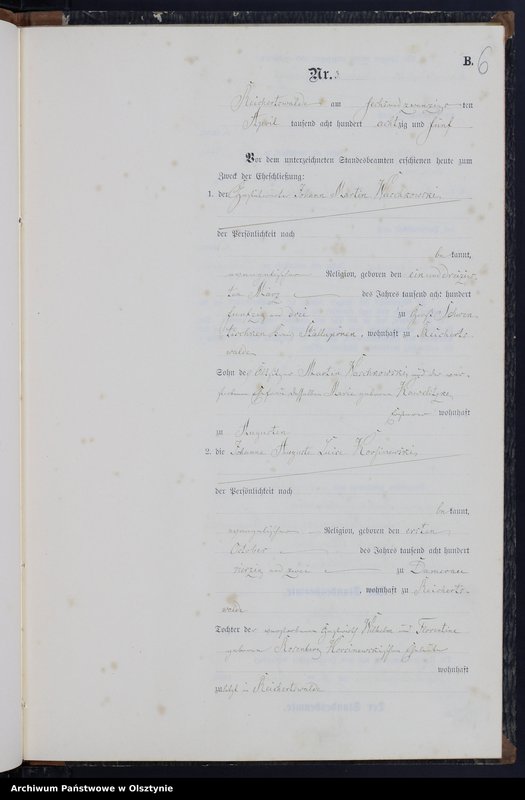 B. 6
Nr. 3
Reichertswalde am sechsundzwanzigsten
April tausend acht hundert achtzig und fünf
Vor dem unterzeichneten Standesbeamten erschienen heute zum
Zweck der Eheschließung:
1. der Johann Martin Waschkowski
der Persönlichkeit nach
be kannt,
evangelischer Religion, geboren den einunddreißig-
ten März des Jahres tausend acht hundert
fünfzig und drei zu Groß Schwen-
Kreis Stallupönen, wohnhaft zu Reicherts-
walde
Sohn des Martin Waschkowski und der ver-
storbenen Ehefrau desselben Marie geborenen
wohnhaft
zu Augusten
2. die Johanne Auguste Luise
der Persönlichkeit nach
be kannt,
evangelischer Religion, geboren den ersten
October des Jahres tausend acht hundert
vierzig und zwei zu Damerau
, wohnhaft zu Reicherts-
walde
Tochter der verstorbenen Wilhelm und Florentine
geborenen Rosenberg
wohnhaft
zu in Reichertswalde
Archiwum Państwowe w Olsztynie